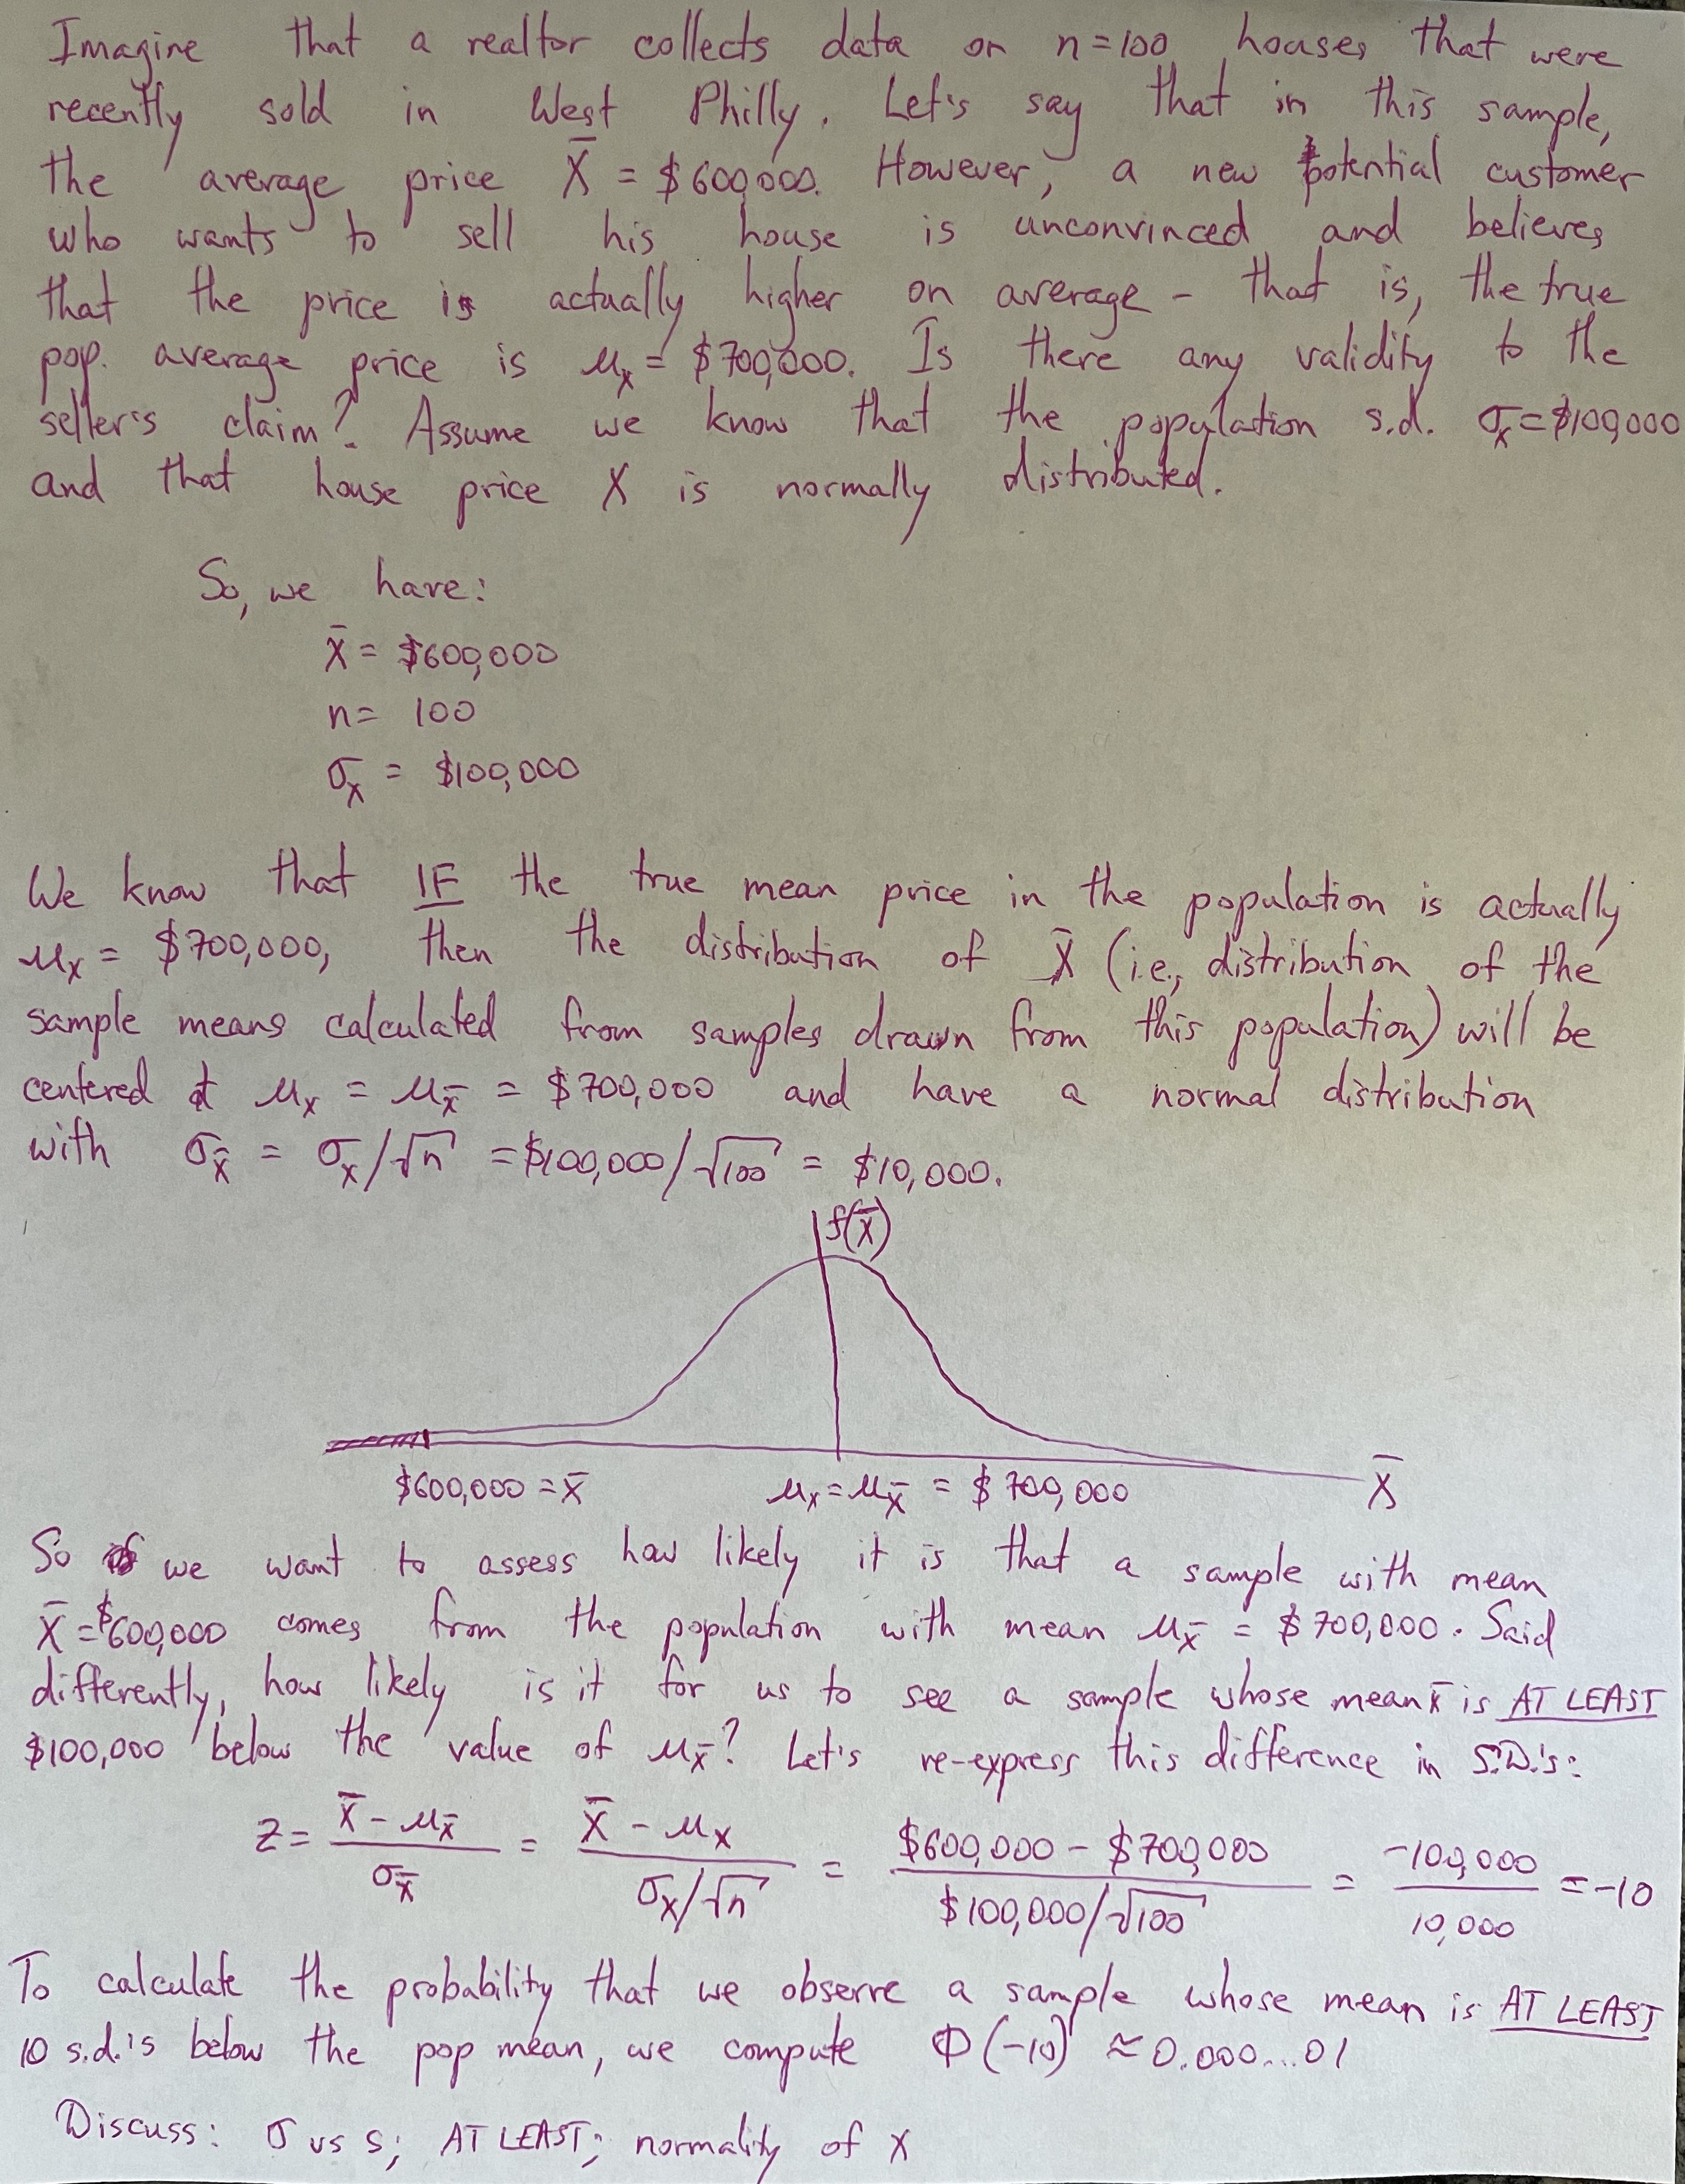 Imagine that a realtor collects data on n=100 houses that were
recently sold in West Philly. Let's say that in this sample,
the average price X̄ = $600,000. However, a new potential customer
who wants to sell his house is unconvinced and believes
that the price is actually higher on average - that is, the true
pop. average price is μₓ = $700,000. Is there any validity to the
seller's claim? Assume we know that the population s.d. σₓ=$100,000
and that house price X is normally distributed.
So, we have:
X̄ = $600,000
n= 100
σₓ = $100,000
We know that IF the true mean price in the population is actually
μₓ = $700,000, then the distribution of X̄ (i.e., distribution of the
sample means calculated from samples drawn from this population) will be
centered at μₓ = μ_X̄ = $700,000 and have a normal distribution
with σ_X̄ = σₓ/√n = $100,000/√100 = $10,000.
f(X̄)
$600,000 = X̄ μₓ = μ_X̄ = $700,000 X̄
So we want to assess how likely it is that a sample with mean
X̄ = $600,000 comes from the population with mean μ_X̄ = $700,000. Said
differently, how likely is it for us to see a sample whose mean X̄ is AT LEAST
$100,000 below the value of μ_X̄? Let's re-express this difference in S.D.'s:
Z = (X̄ - μ_X̄)/σ_X̄ = (X̄ - μₓ)/(σₓ/√n) = ($600,000 - $700,000)/($100,000/√100) = -100,000/10,000 = -10
To calculate the probability that we observe a sample whose mean is AT LEAST
10 s.d.'s below the pop mean, we compute Φ(-10) ≈ 0.000...01
Discuss: σ vs s; AT LEAST; normality of X